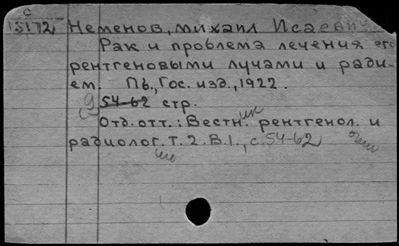 С
15172 Неменов, Михаил Исаевич
Рак и проблема лечения его
рентгеновыми лучами и ради-
ем. Пб., Гос. изд., 1922.
54-62 стр.
Отд. отт.: Вестн. рентгенол. и
радиолог. Т. 2. В. 1., с. 54-62